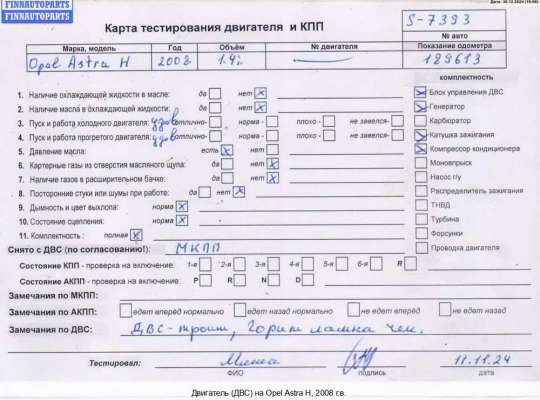 Дата: 30.12.2024
FINNAUTOPARTS
FINNAUTOPARTS
FINNAUTOPARTS
Карта тестирования двигателя и КПП
S-7393
№ авто
Марка, модель Год Объём № двигателя Показание одометра
Opel Astra H 2008 1.4i 189613
комплектность
1. Наличие охлаждающей жидкости в масле: да нет
2. Наличие масла в охлаждающей жидкости: да нет
3. Пуск и работа холодного двигателя: удов отлично- норма - плохо - не завелся-
4. Пуск и работа прогретого двигателя: удов отлично- норма - плохо - не завелся-
5. Давление масла: есть нет
6. Картерные газы из отверстия масляного щупа: да нет
7. Наличие газов в расширительном бачке: да нет
8. Посторонние стуки или шумы при работе: да нет
9. Дымность и цвет выхлопа: норма
10. Состояние сцепления: норма
11. Комплектность: полная
Блок управления ДВС
Генератор
Карбюратор
Катушка зажигания
Компрессор кондиционера
Моновпрыск
Насос г/у
Распределитель зажигания
ТНВД
Турбина
Форсунки
Проводка двигателя
Снято с ДВС (по согласованию!): МКПП
Состояние КПП - проверка на включение: 1-я 2-я 3-я 4-я 5-я 6-я R
Состояние АКПП - проверка на включение: P R N D
Замечания по МКПП:
Замечания по АКПП: едет вперёд нормально едет назад нормально не едет вперёд не едет назад
Замечания по ДВС: ДВС-троит, Горит лампа чек.
Тестировал: Миша 11.11.24
ФИО подпись дата
Двигатель (ДВС) на Opel Astra H, 2008 г.в.